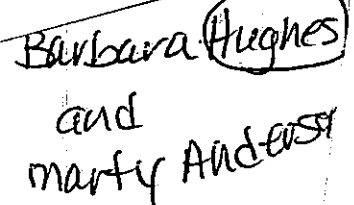 Barbara Hughes
and
marty Anderson